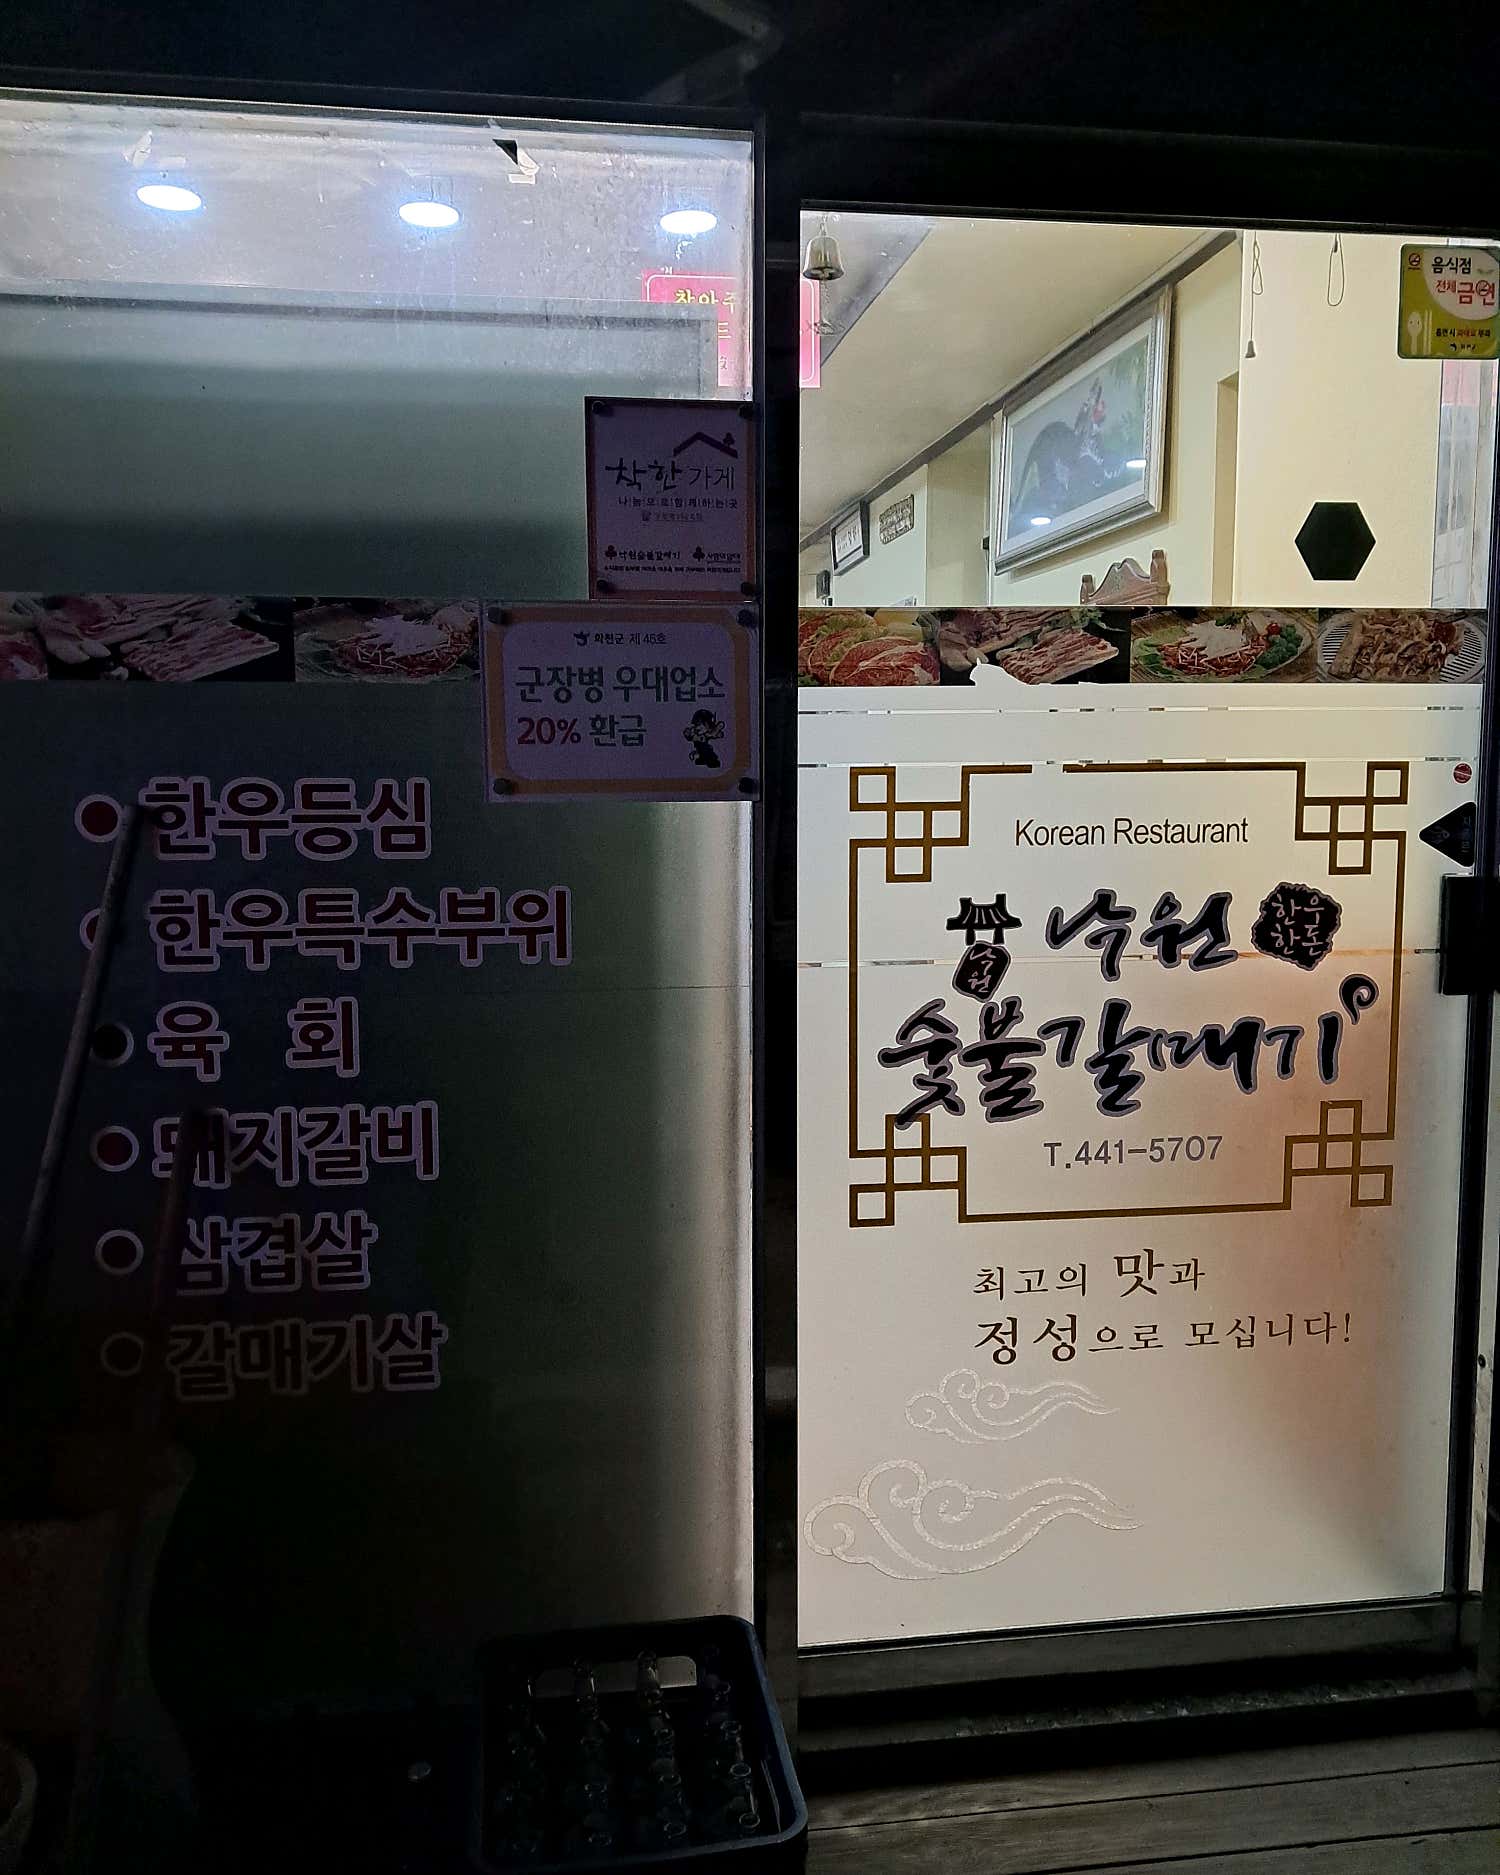 착한가게
나눔으로함께하는곳
낙원숯불갈매기
화천군 제 46호
군장병 우대업소
20% 환급
한우등심
한우특수부위
육 회
돼지갈비
삼겹살
갈매기살
음식점
전체금연
흡연시 과태료 부과
Korean Restaurant
낙원
낙원
한우
한돈
숯불갈매기
T.441-5707
최고의 맛과
정성으로 모십니다!